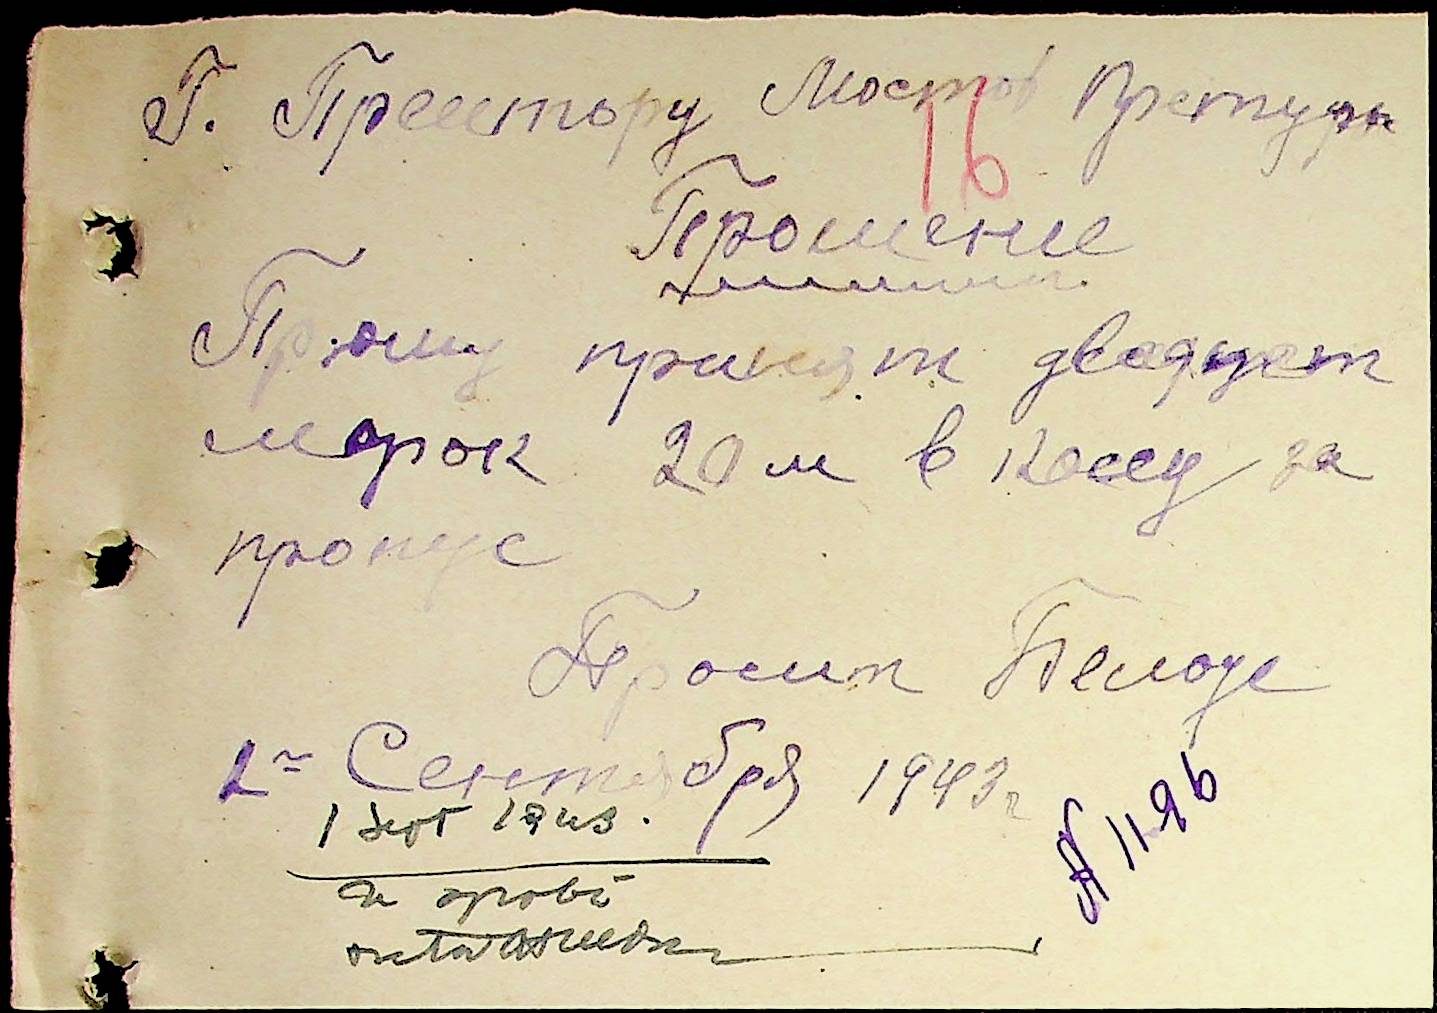 Г. Преетору Мостов Претуры
16
Прошение
Прошу принят двадцат
марок 20 м в кассу за
пропус
Просит
2го Сентября 1943 г
1 Sept 1943.
N 1196